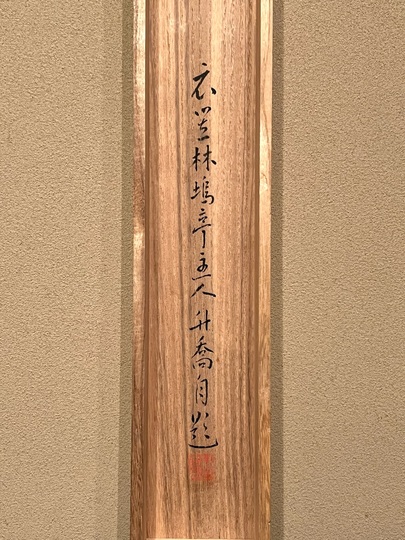 衣笠林塢亭主人升喬自題